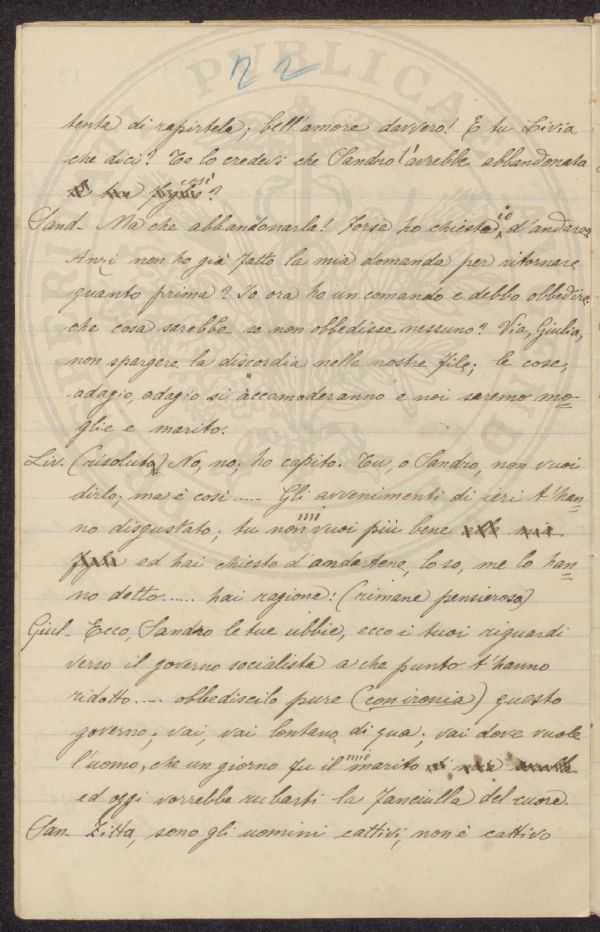 22
tenta di rapirtela; bell'amore davvero! E tu Livia
che dici? Tu lo credevi che Sandro t'avrebbe abbandonata
così?
Sand- Ma che abbandonarla! Forse ho chiesto io d'andare?
Anzi non ho già fatto la mia domanda per ritornare
quanto prima? Io ora ho un comando e debbo obbedire;
che cosa sarebbe se non obbedisse nessuno? Via, Giulia,
non spargere la discordia nelle nostre file; le cose,
adagio, adagio si accomoderanno e noi saremo mo=
glie e marito.
Liv. (risoluta) No, no; ho capito. Tu, o Sandro, non vuoi
dirlo; ma è così ..... Gli avvenimenti di ieri t'han=
no disgustato; tu non mi vuoi più bene
ed hai chiesto d'andartene, lo so, me lo han=
no detto...... hai ragione! (rimane pensierosa)
Giul- Ecco, Sandro le tue ubbie, ecco i tuoi riguardi
verso il governo socialista a che punto t'hanno
ridotto..... obbediscilo pure (con ironia) questo
governo; vai, vai lontano di qua; vai dove vuole
l'uomo, che un giorno fu il mio marito
ed oggi vorrebbe rubarti la fanciulla del cuore.
San- Zitta, sono gli uomini cattivi, non è cattivo